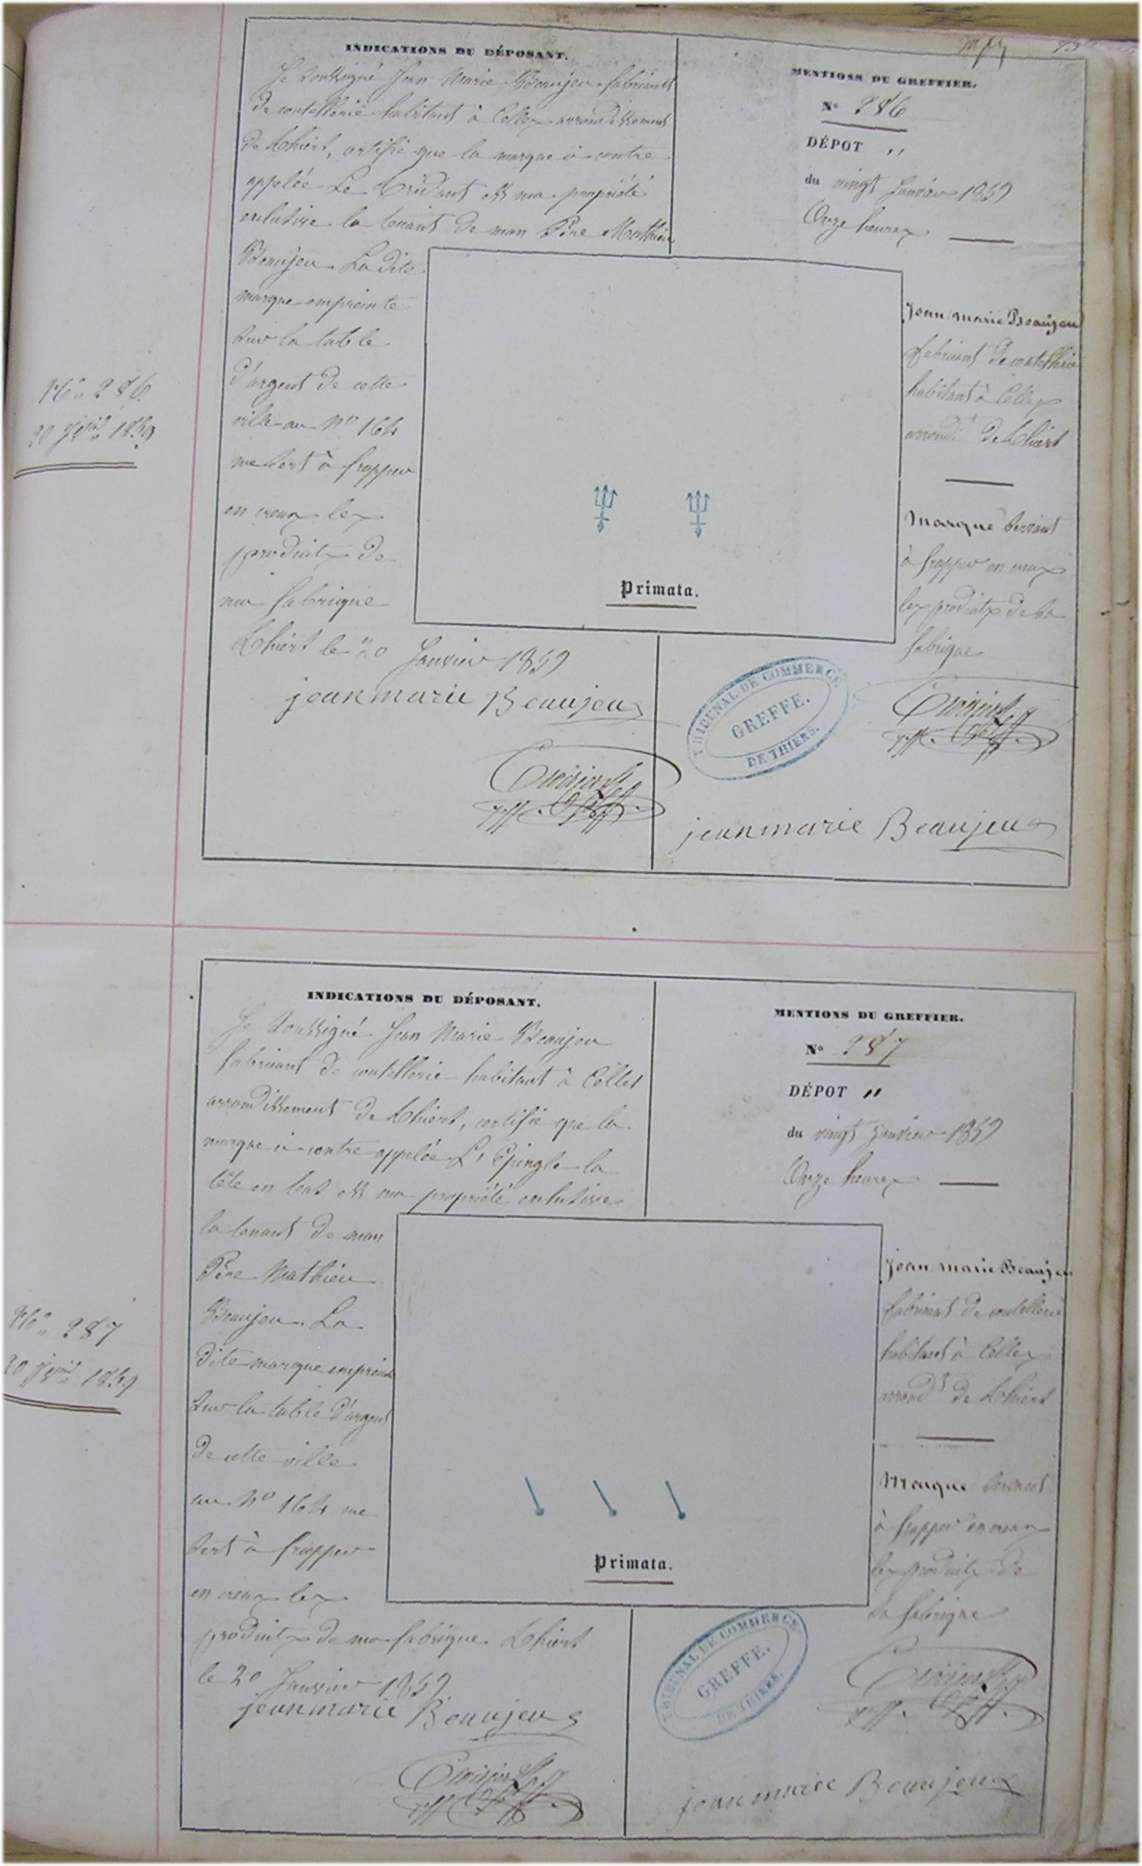 INDICATIONS DU DÉPOSANT.
Je soussigné Jean Marie Beaujeu fabricant
de coutellerie habitant à Celles arrondissement
de Thiers, certifie que la marque ci contre
appelée Le Trident est ma propriété
exclusive la tenant de mon Père Mathieu
Beaujeu. La dite
marque empreinte
sur la table
d'argent de cette
ville au N° 164
me sert à frapper
en creux les
produits de
ma fabrique
Thiers le 20 Janvier 1859
jean marie Beaujeu
MENTIONS DU GREFFIER.
N° 286
DÉPOT "
du vingt Janvier 1859
Onze heures
Jean marie Beaujeu
fabricant de coutellerie
habitant à Celles
arrondt de Thiers
Marque servant
à frapper en creux
les produits de sa
fabrique
Primata.
TRIBUNAL DE COMMERCE
GREFFE.
DE THIERS.
jean marie Beaujeu
N° 286
20 jvier 1859
INDICATIONS DU DÉPOSANT.
Je soussigné Jean Marie Beaujeu
fabricant de coutellerie habitant à Celles
arrondissement de Thiers, certifie que la
marque ci contre appelée L'Epingle la
tête en bas est ma propriété exclusive
la tenant de mon
Père Mathieu
Beaujeu. La
dite marque empreinte
sur la table d'argent
de cette ville
au N° 164 me
sert à frapper
en creux les
produits de ma fabrique. Thiers
le 20 Janvier 1859
jean marie Beaujeu
MENTIONS DU GREFFIER.
N° 287
DÉPOT "
du vingt janvier 1859
Onze heures
jean marie Beaujeu
fabricant de coutellerie
habitant à Celles
arrondt de Thiers
Marque servant
à frapper en creux
les produits de
sa fabrique
Primata.
TRIBUNAL DE COMMERCE
GREFFE.
DE THIERS.
jean marie Beaujeu
N° 287
20 jvier 1859